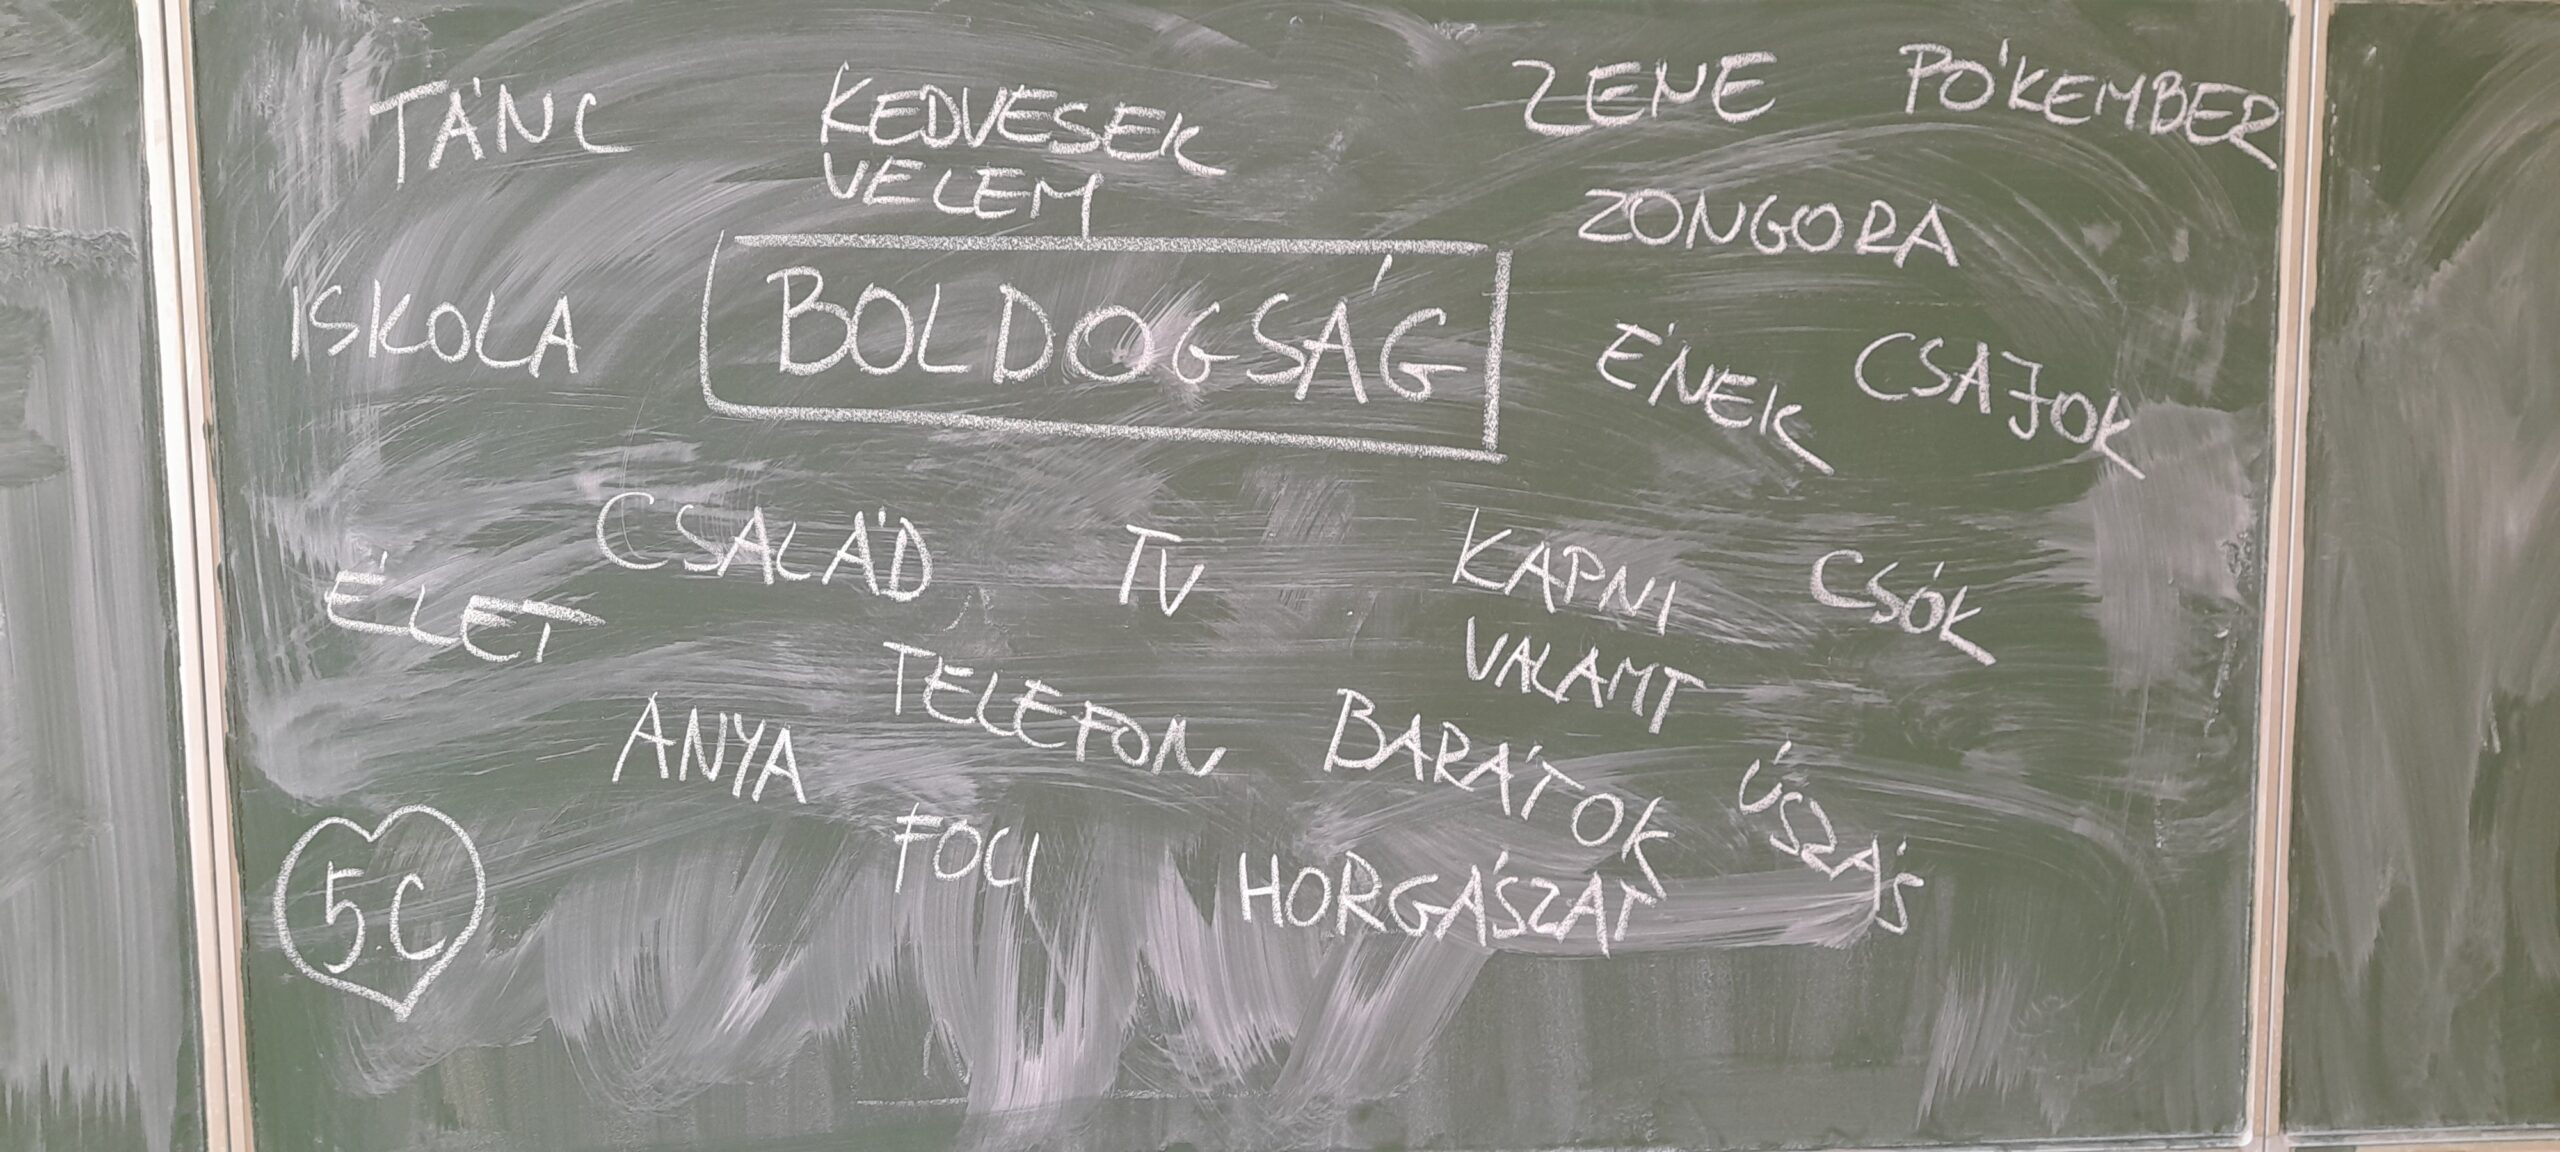 TÁNC
KEDVESEK
VELEM
ZENE
PÓKEMBER
ZONGORA
ISKOLA
BOLDOGSÁG
ÉNEK
CSAJOK
CSALÁD
TV
KAPNI
VALAMIT
CSÓK
ÉLET
TELEFON
ANYA
BARÁTOK
ÚSZÁS
FOCI
HORGÁSZAT
5.C